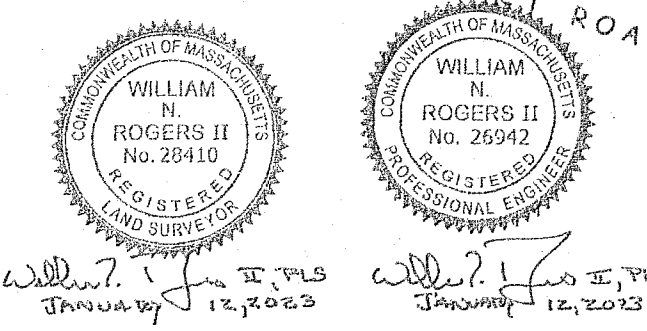 ROA
COMMONWEALTH OF MASSACHUSETTS
WILLIAM
N.
ROGERS II
No. 28410
REGISTERED
LAND SURVEYOR
COMMONWEALTH OF MASSACHUSETTS
WILLIAM
N.
ROGERS II
No. 26942
REGISTERED
PROFESSIONAL ENGINEER
II, PLS
JANUARY 12, 2023
II, P
JANUARY 12, 2023